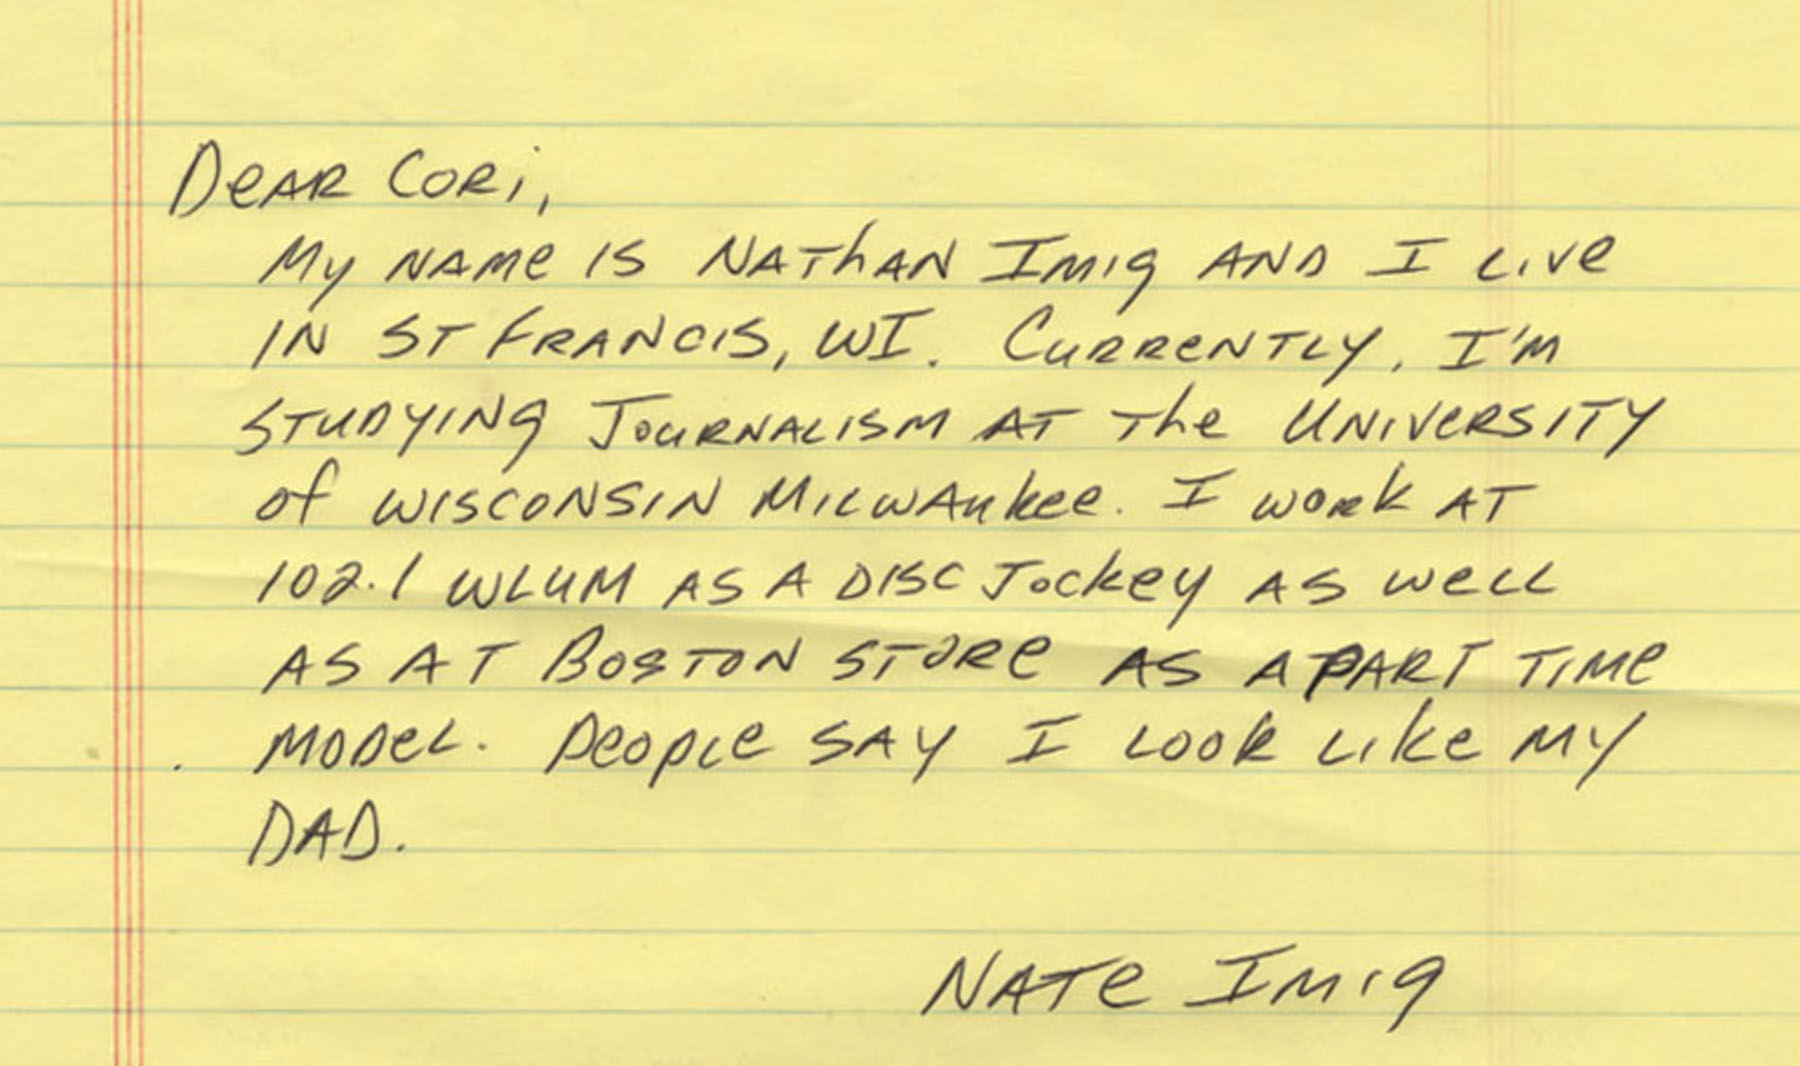 Dear Cori,
My name is Nathan Imig and I live
in St Francis, WI. Currently, I'm
studying Journalism at the University
of Wisconsin Milwaukee. I work at
102.1 WLUM as a disc Jockey as well
as at Boston Store as a part time
model. People say I look like my
Dad.
Nate Imig